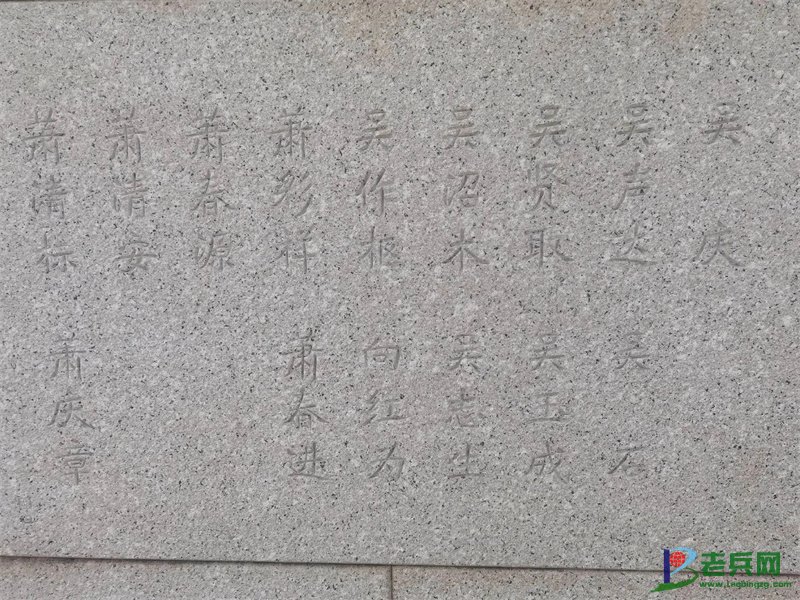 吴庆
吴声达
吴石
吴贤取
吴玉成
吴沼木
吴志生
吴作枢
向红为
萧彩祥
萧春进
萧春源
萧清安
萧清标
萧庆章
老兵网
www.laobingzg.com